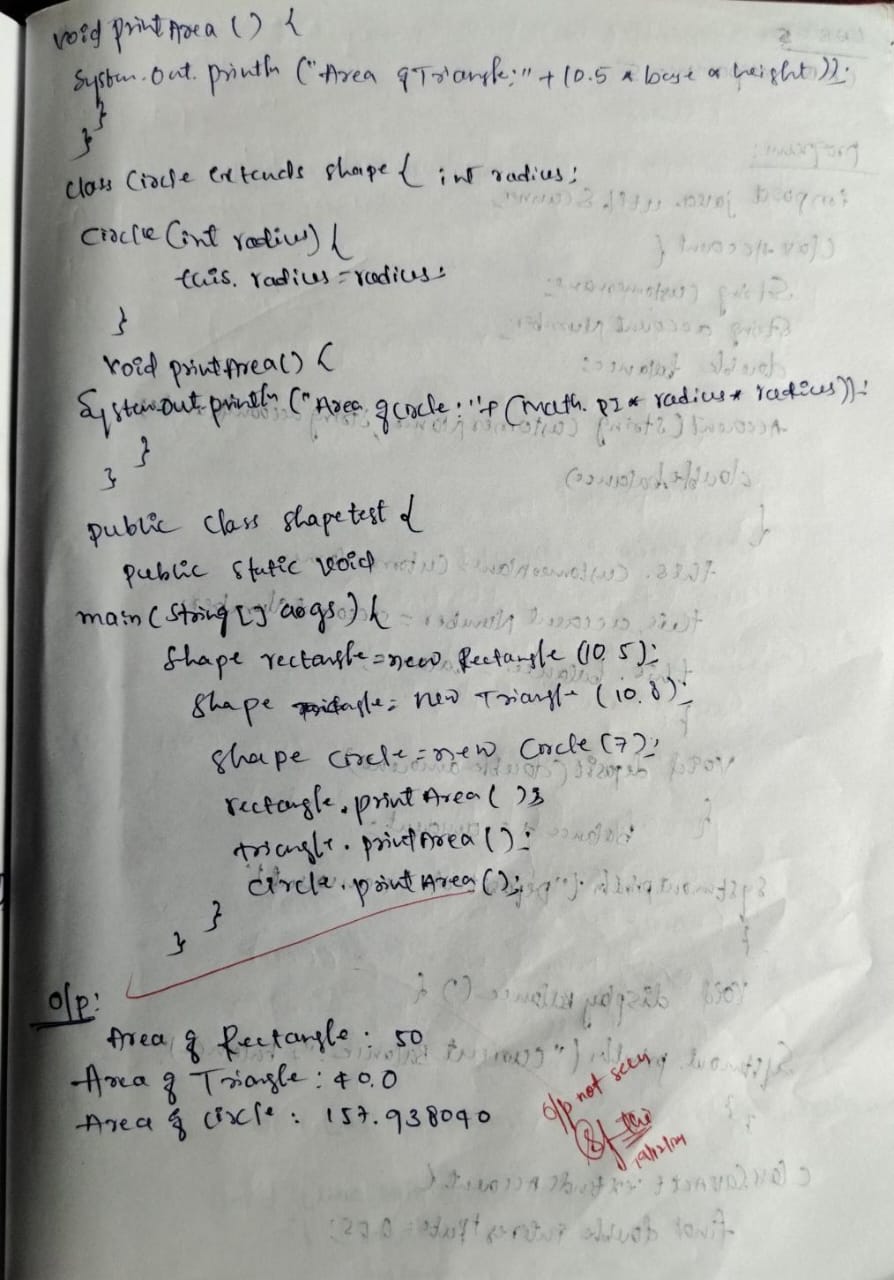 void printArea () {
System.out.println ("Area of Triangle:" + (0.5 * base * height));
}
}
class Circle extends shape { int radius;
Circle (int radius) {
this. radius = radius;
}
void printArea() {
System.out.println ("Area of circle:"+ (Math. PI * radius * radius));
}
}
public class shapetest {
public static void
main (String [] args) {
Shape rectangle = new Rectangle (10, 5);
Shape triangle = new Triangle (10, 8);
Shape circle = new Circle (7);
rectangle. print Area ( );
triangle. printArea ();
circle. print Area ();
}
}
o/p:
Area of Rectangle : 50
Area of Triangle : 40.0
Area of circle : 157.938040
o/p not seen
19/12/24